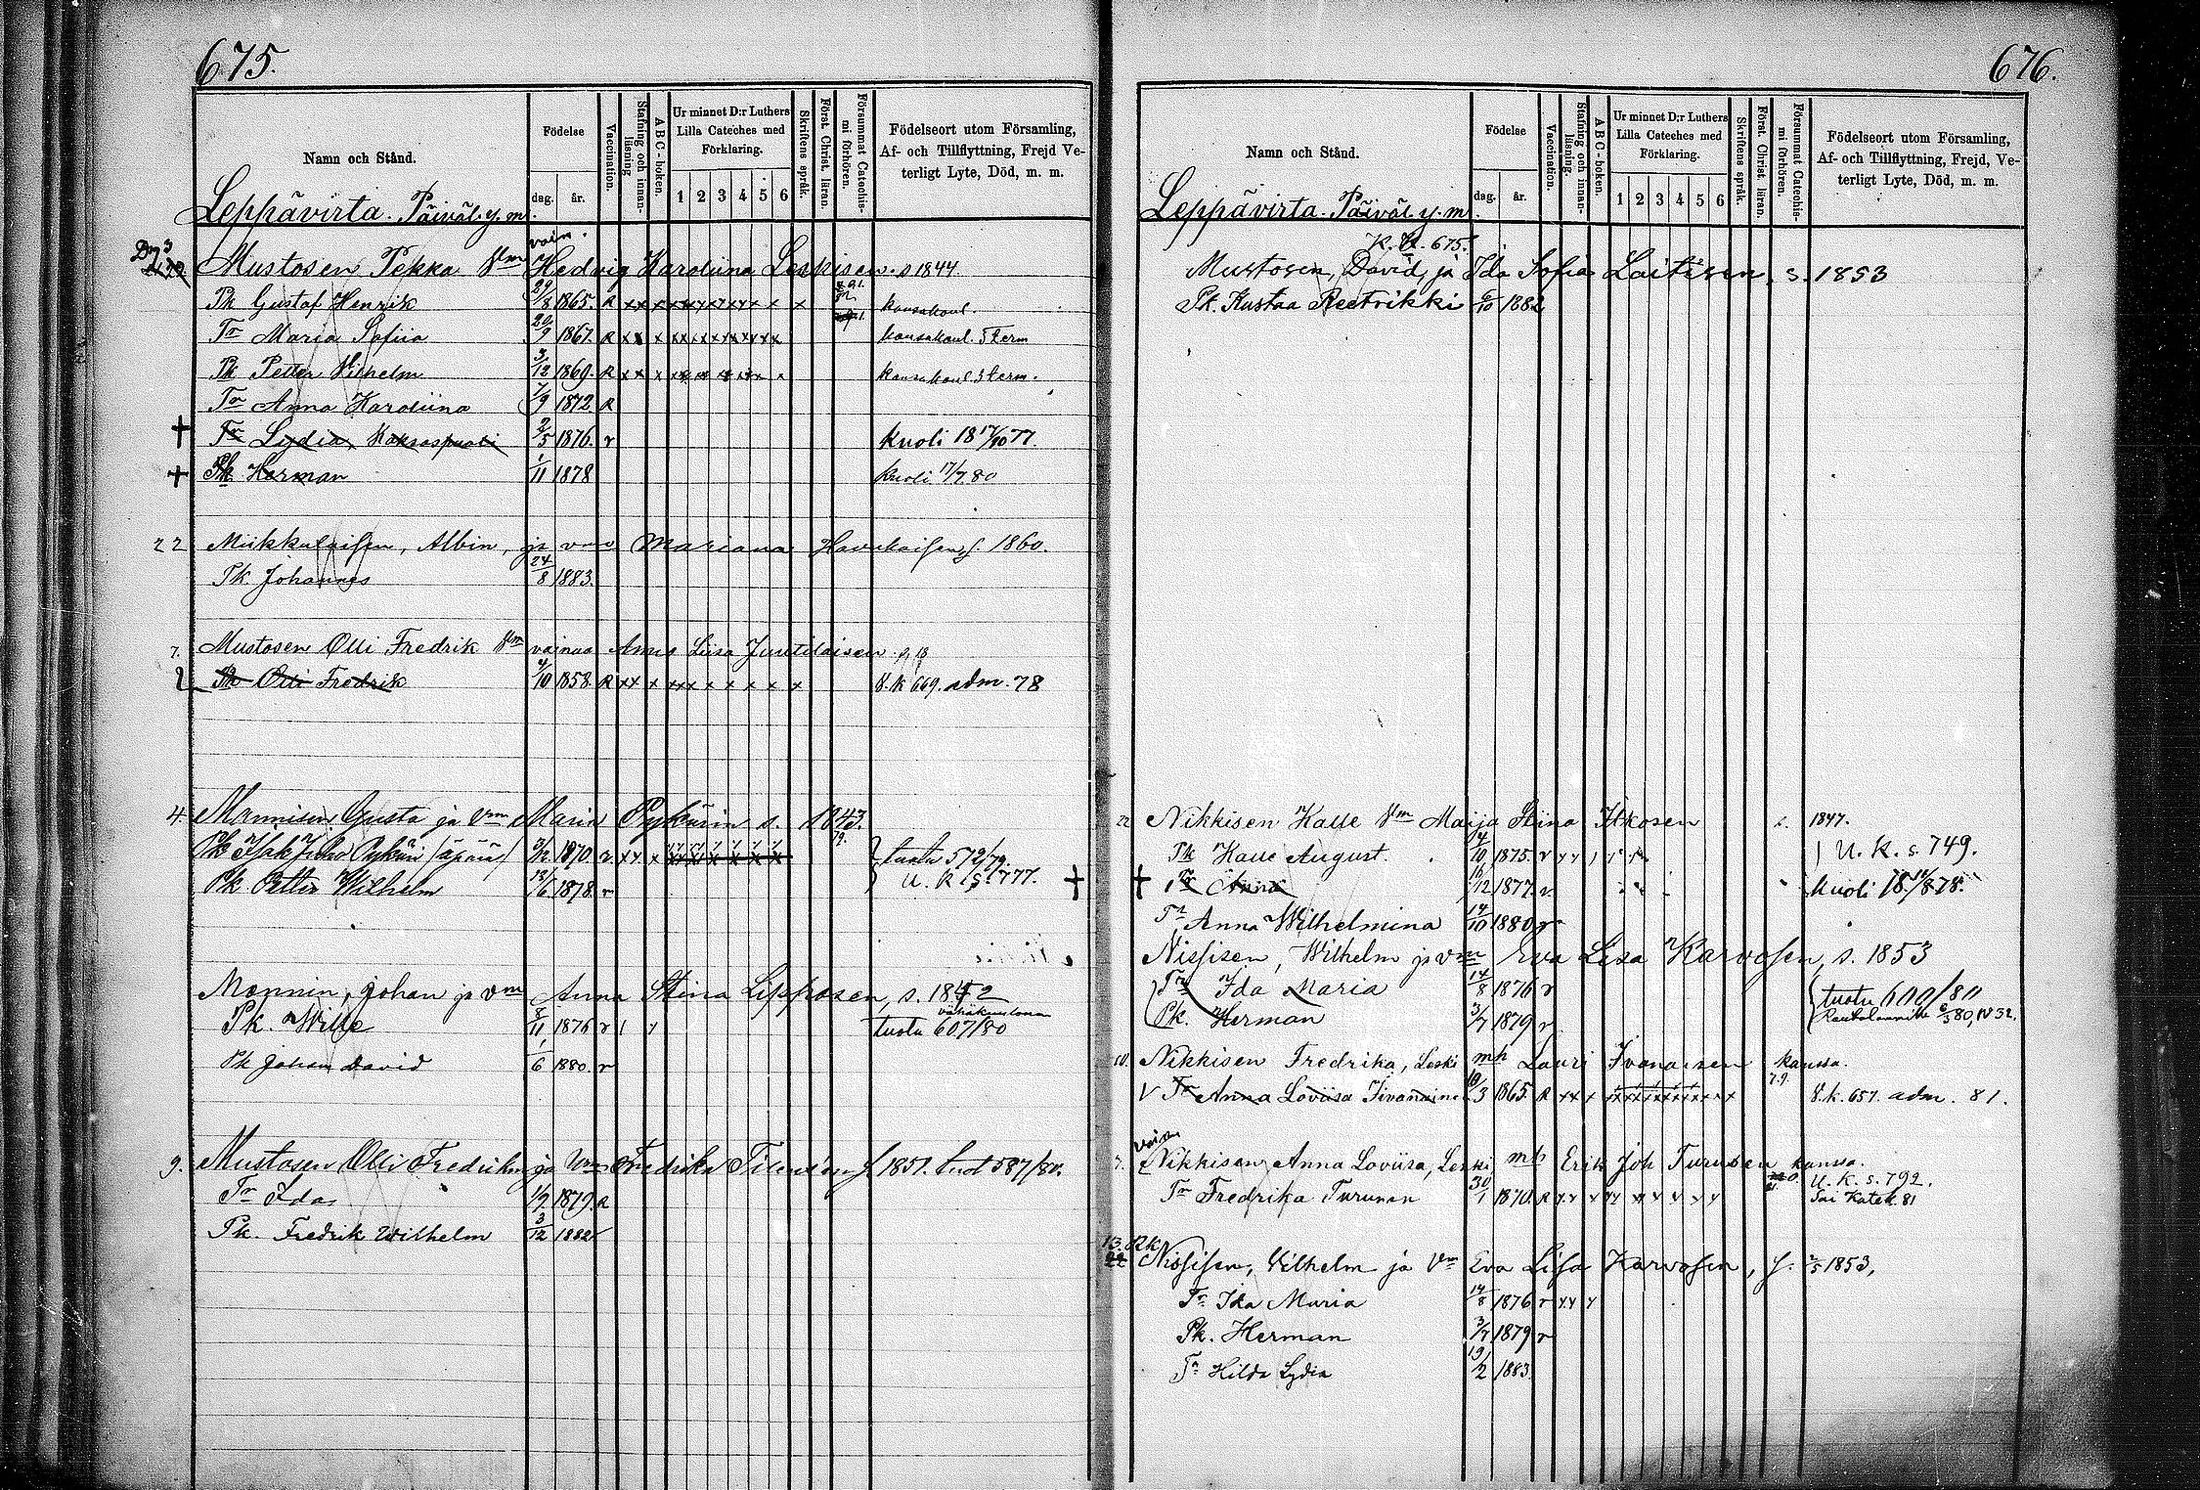 675.
Namn och Stånd.
Födelse
dag.
år.
Vaccination.
Stafning och innan-läsning
ABC-boken.
Ur minnet D:r Luthers Lilla Cateches med Förklaring.
1 2 3 4 5 6
Skriftens språk.
Först. Christ. läran.
Försummat Catechis-mi förhören.
Födelseort utom Församling, Af- och Tillflyttning, Frejd Ve-terligt Lyte, Död, m. m.
Leppävirta. Päiväl. y. m.
Mustosen Pekka Vm Hedvig Karoliina Leskisen. s 1844.
Pk Gustaf Henrik 29/8 1865. R kansakoul.
Tr Maria Sofiia 20/9 1867. R kansakoul. 5 term
Pk Petter Vilhelm 3/12 1869. R kansakoul 3 term.
Tr Anna Karoliina 7/9 1872. R
† Tr Lydia, Kaksospuoli 2/5 1876. r kuoli 18 17/10 77.
† Pk Herman 1/11 1878 kuoli 17/7 80
22 Miikkulaisen, Albin, ja vmo Mariana Haverkaisen, s. 1860.
Pk Johannes 24/8 1883.
7. Mustosen Olli Fredrik Vm vainaa Anna Liisa Juutilaisen
Pk Olli Fredrik 4/10 1858. R S. k 669. adm. 78
4. Mannisen, Gusta ja Vm Maria Pykärin s. 1843.
Pk Isak Juho Pykäri /äpärä/ 1870. r tuotu 572/79.
Pk. Petter Wilhelm 13/6 1878. r U. K. S. 777.
Mannin, Johan ja Vm Anna Stina Lipposen, s. 1842
Pk. Wille 8/11 1876 r tuotu 607/80
Pk Johan David 1/6 1880. r
9. Mustosen Olli Fredrikin ja Vm Fredrika s. 1851. tuot 587/80.
Tr Ida 1/9 1879. R
Pk. Fredrik Wilhelm 3/12 1882
676.
Namn och Stånd.
Födelse
dag.
år.
Vaccination.
Stafning och innan-läsning.
ABC-boken.
Ur minnet D:r Luthers Lilla Cateches med Förklaring.
1 2 3 4 5 6
Skriftens språk.
Först. Christ. läran.
Försummat Catechis-mi förhören.
Födelseort utom Församling, Af- och Tillflyttning, Frejd, Ve-terligt Lyte, Död, m. m.
Leppävirta. Päiväl y. m.
675.
Mustosen, David, ja Ida Sofia Laitisen, s. 1853
Pk. Kustaa Reetrikki 6/10 1882
22 Nikkisen Kalle Vm Maija Stiina Itkosen s. 1847.
Pk Kalle August. 4/10 1875. r U. K. s. 749.
† Tr Anna 16/12 1877. r kuoli
Tr Anna Wilhelmina 14/10 1880 r
Nissisen, Wilhelm ja Vm Eva Lisa Karvosen, s. 1853
Tr Ida Maria 14/8 1876 r tuotu 600/80
Pk. Herman 3/7 1879 r
10. Nikkisen Fredrika, Leski mh Lauri Iivanaisen kanssa.
V Tr Anna Loviisa Iivanaine 10/3 1865. R S. k. 657. adm. 81.
vain
7. Nikkisen, Anna Loviisa, Leski mh Erik Joh Turusen kanssa.
U. K. s. 792.
Tr Fredrika Turunen 30/1 1870. R Sai Katek. 81
13. Rk
Nissisen, Wilhelm ja Vm Eva Lisa Karvosen, s. 2/5 1853,
Tr Ida Maria 14/8 1876 r
Pk. Herman 3/7 1879 r
Tr Hilda Lydia 19/2 1883